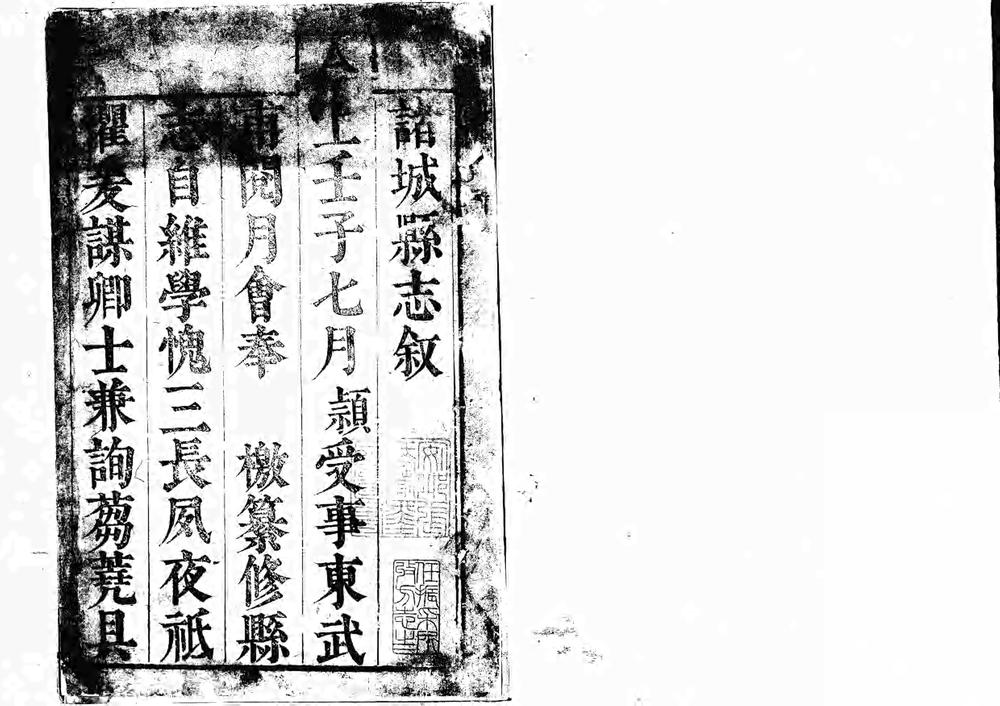 諸城縣志叙
今上壬子七月穎受事東武
甫閱月會奉 檄纂修縣
志自維學愧三長夙夜祗
懼爰謀卿士兼詢蒭蕘具
任振采家
改方志之